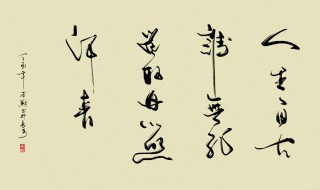 人生自古
誰無死
留取丹心照
汗青